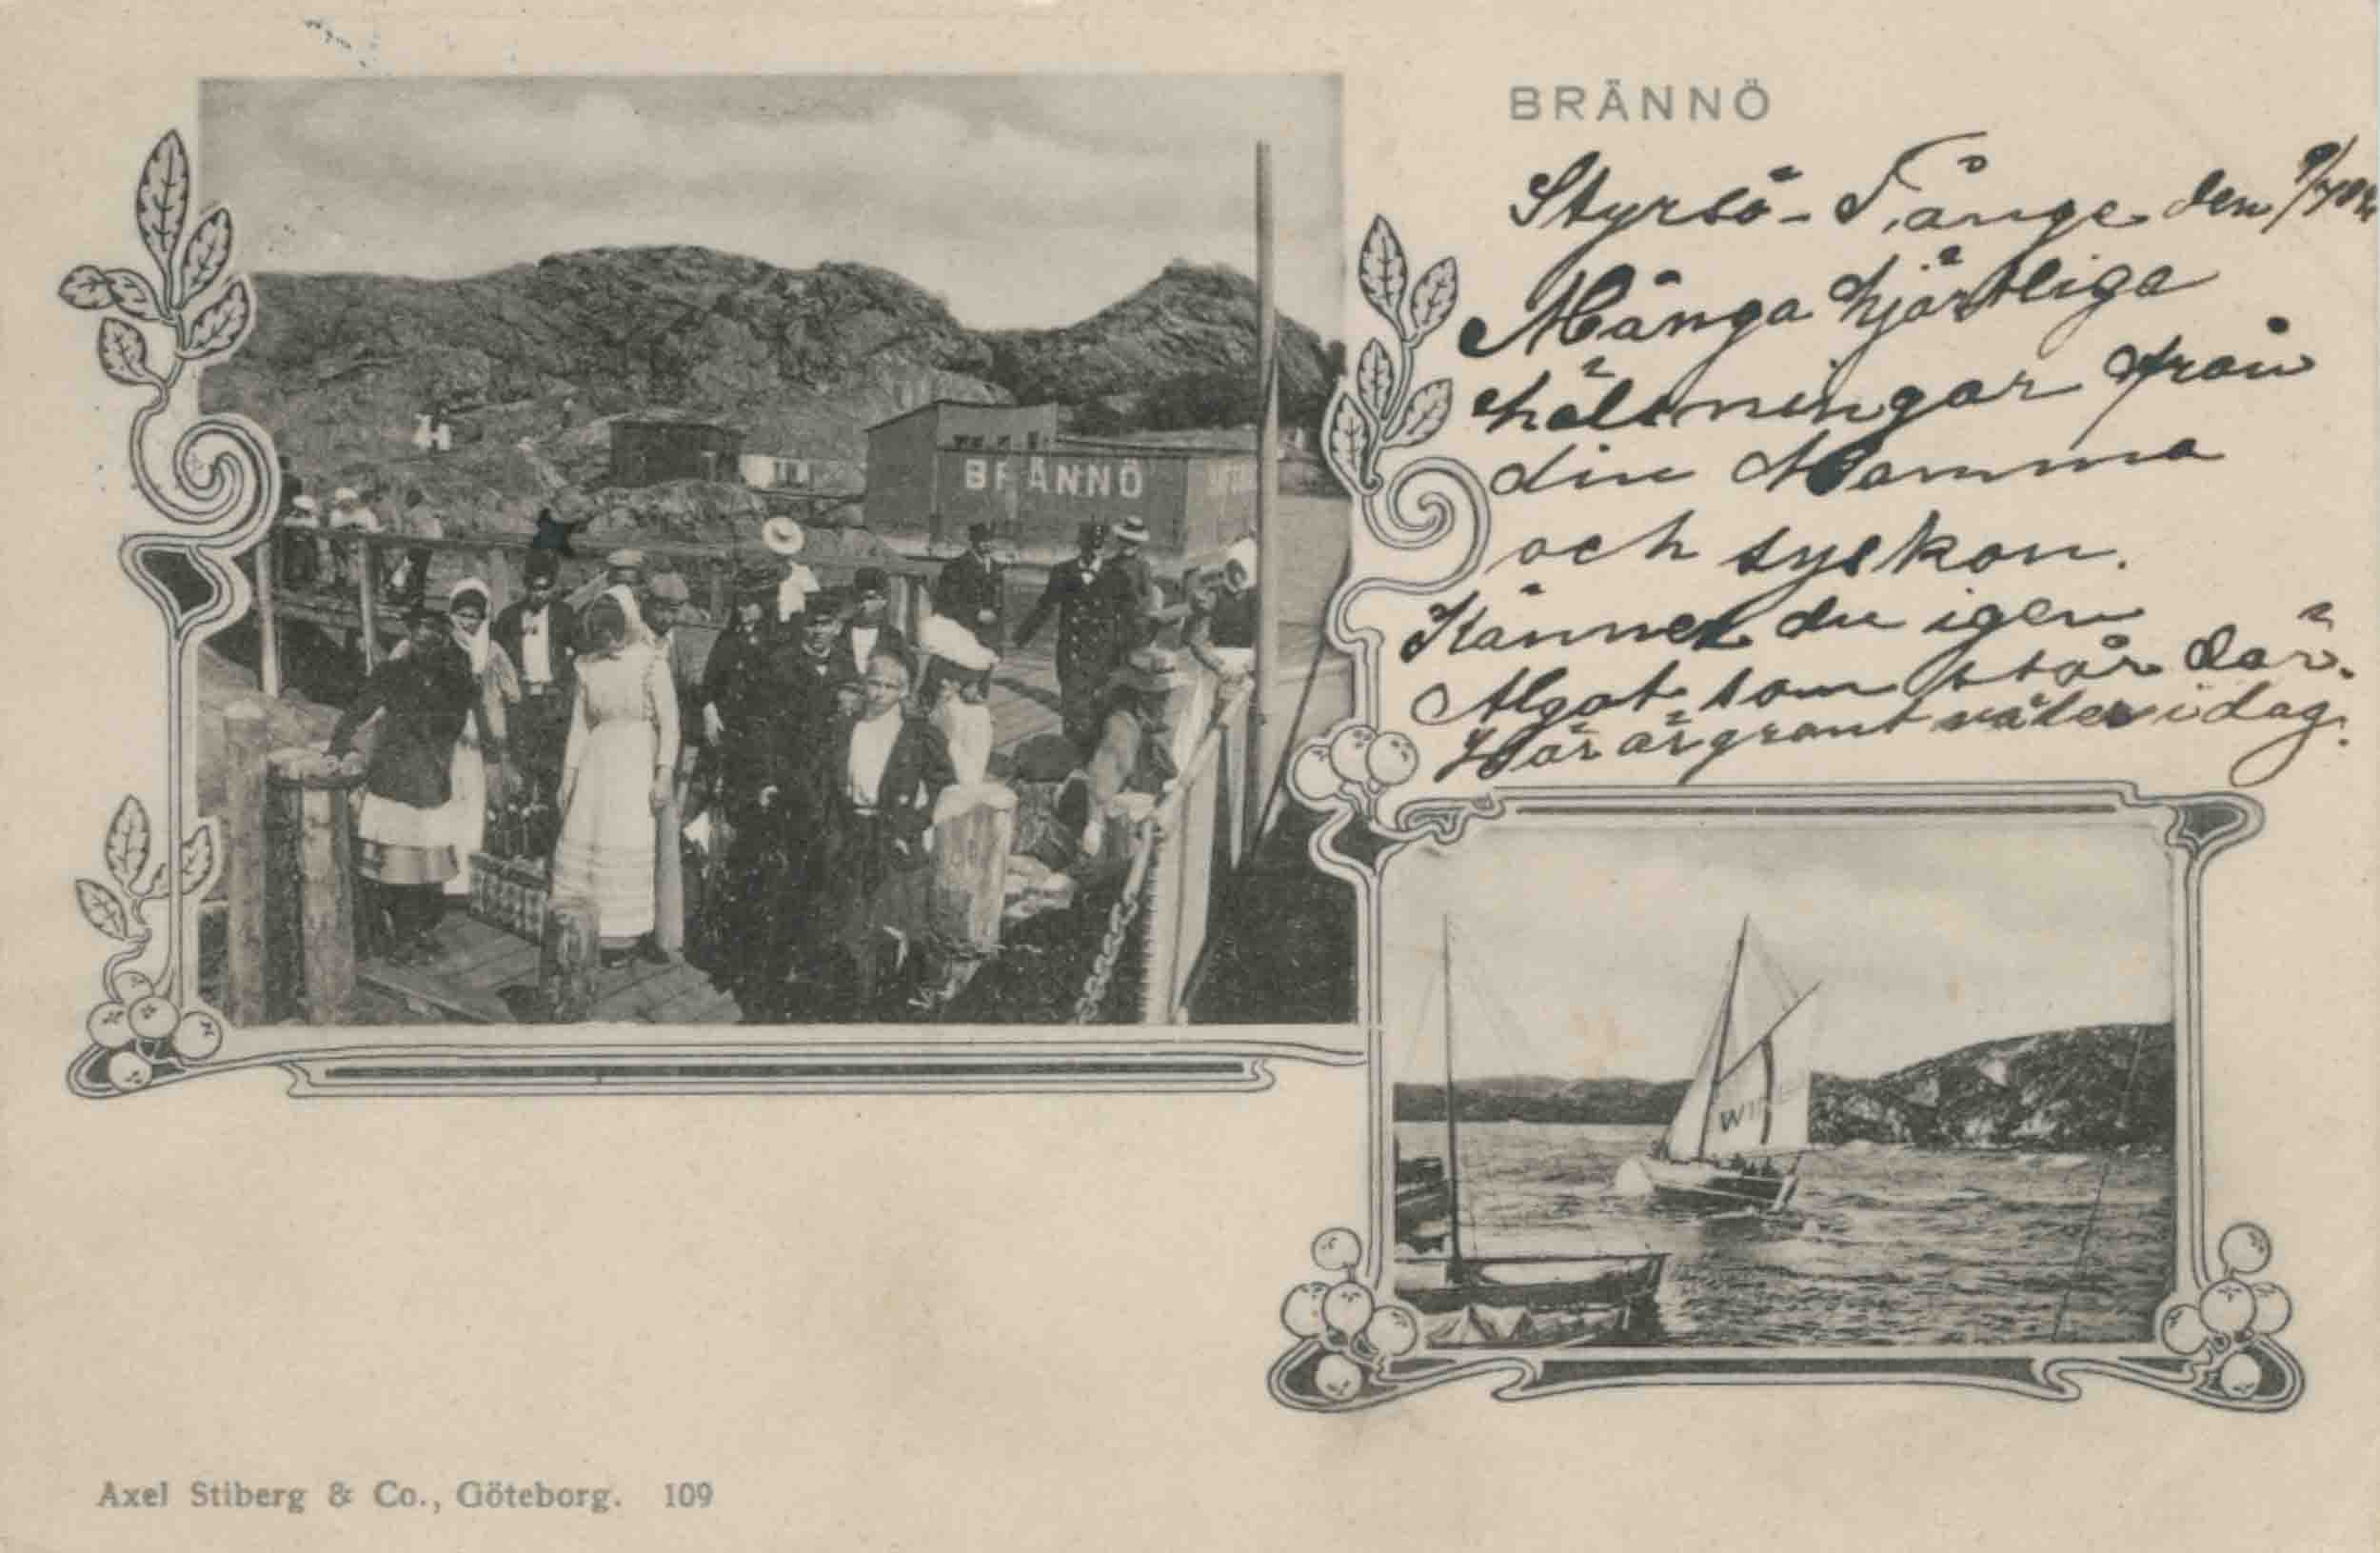 BRÄNNÖ
Styrsö-Tånge den 9/7 02
Många hjärtliga
hälsningar från
din Mamma
och syskon.
Känner du igen
Algot som står där.
Här är grant väder i dag.
BRÄNNÖ
Axel Stiberg & Co., Göteborg. 109